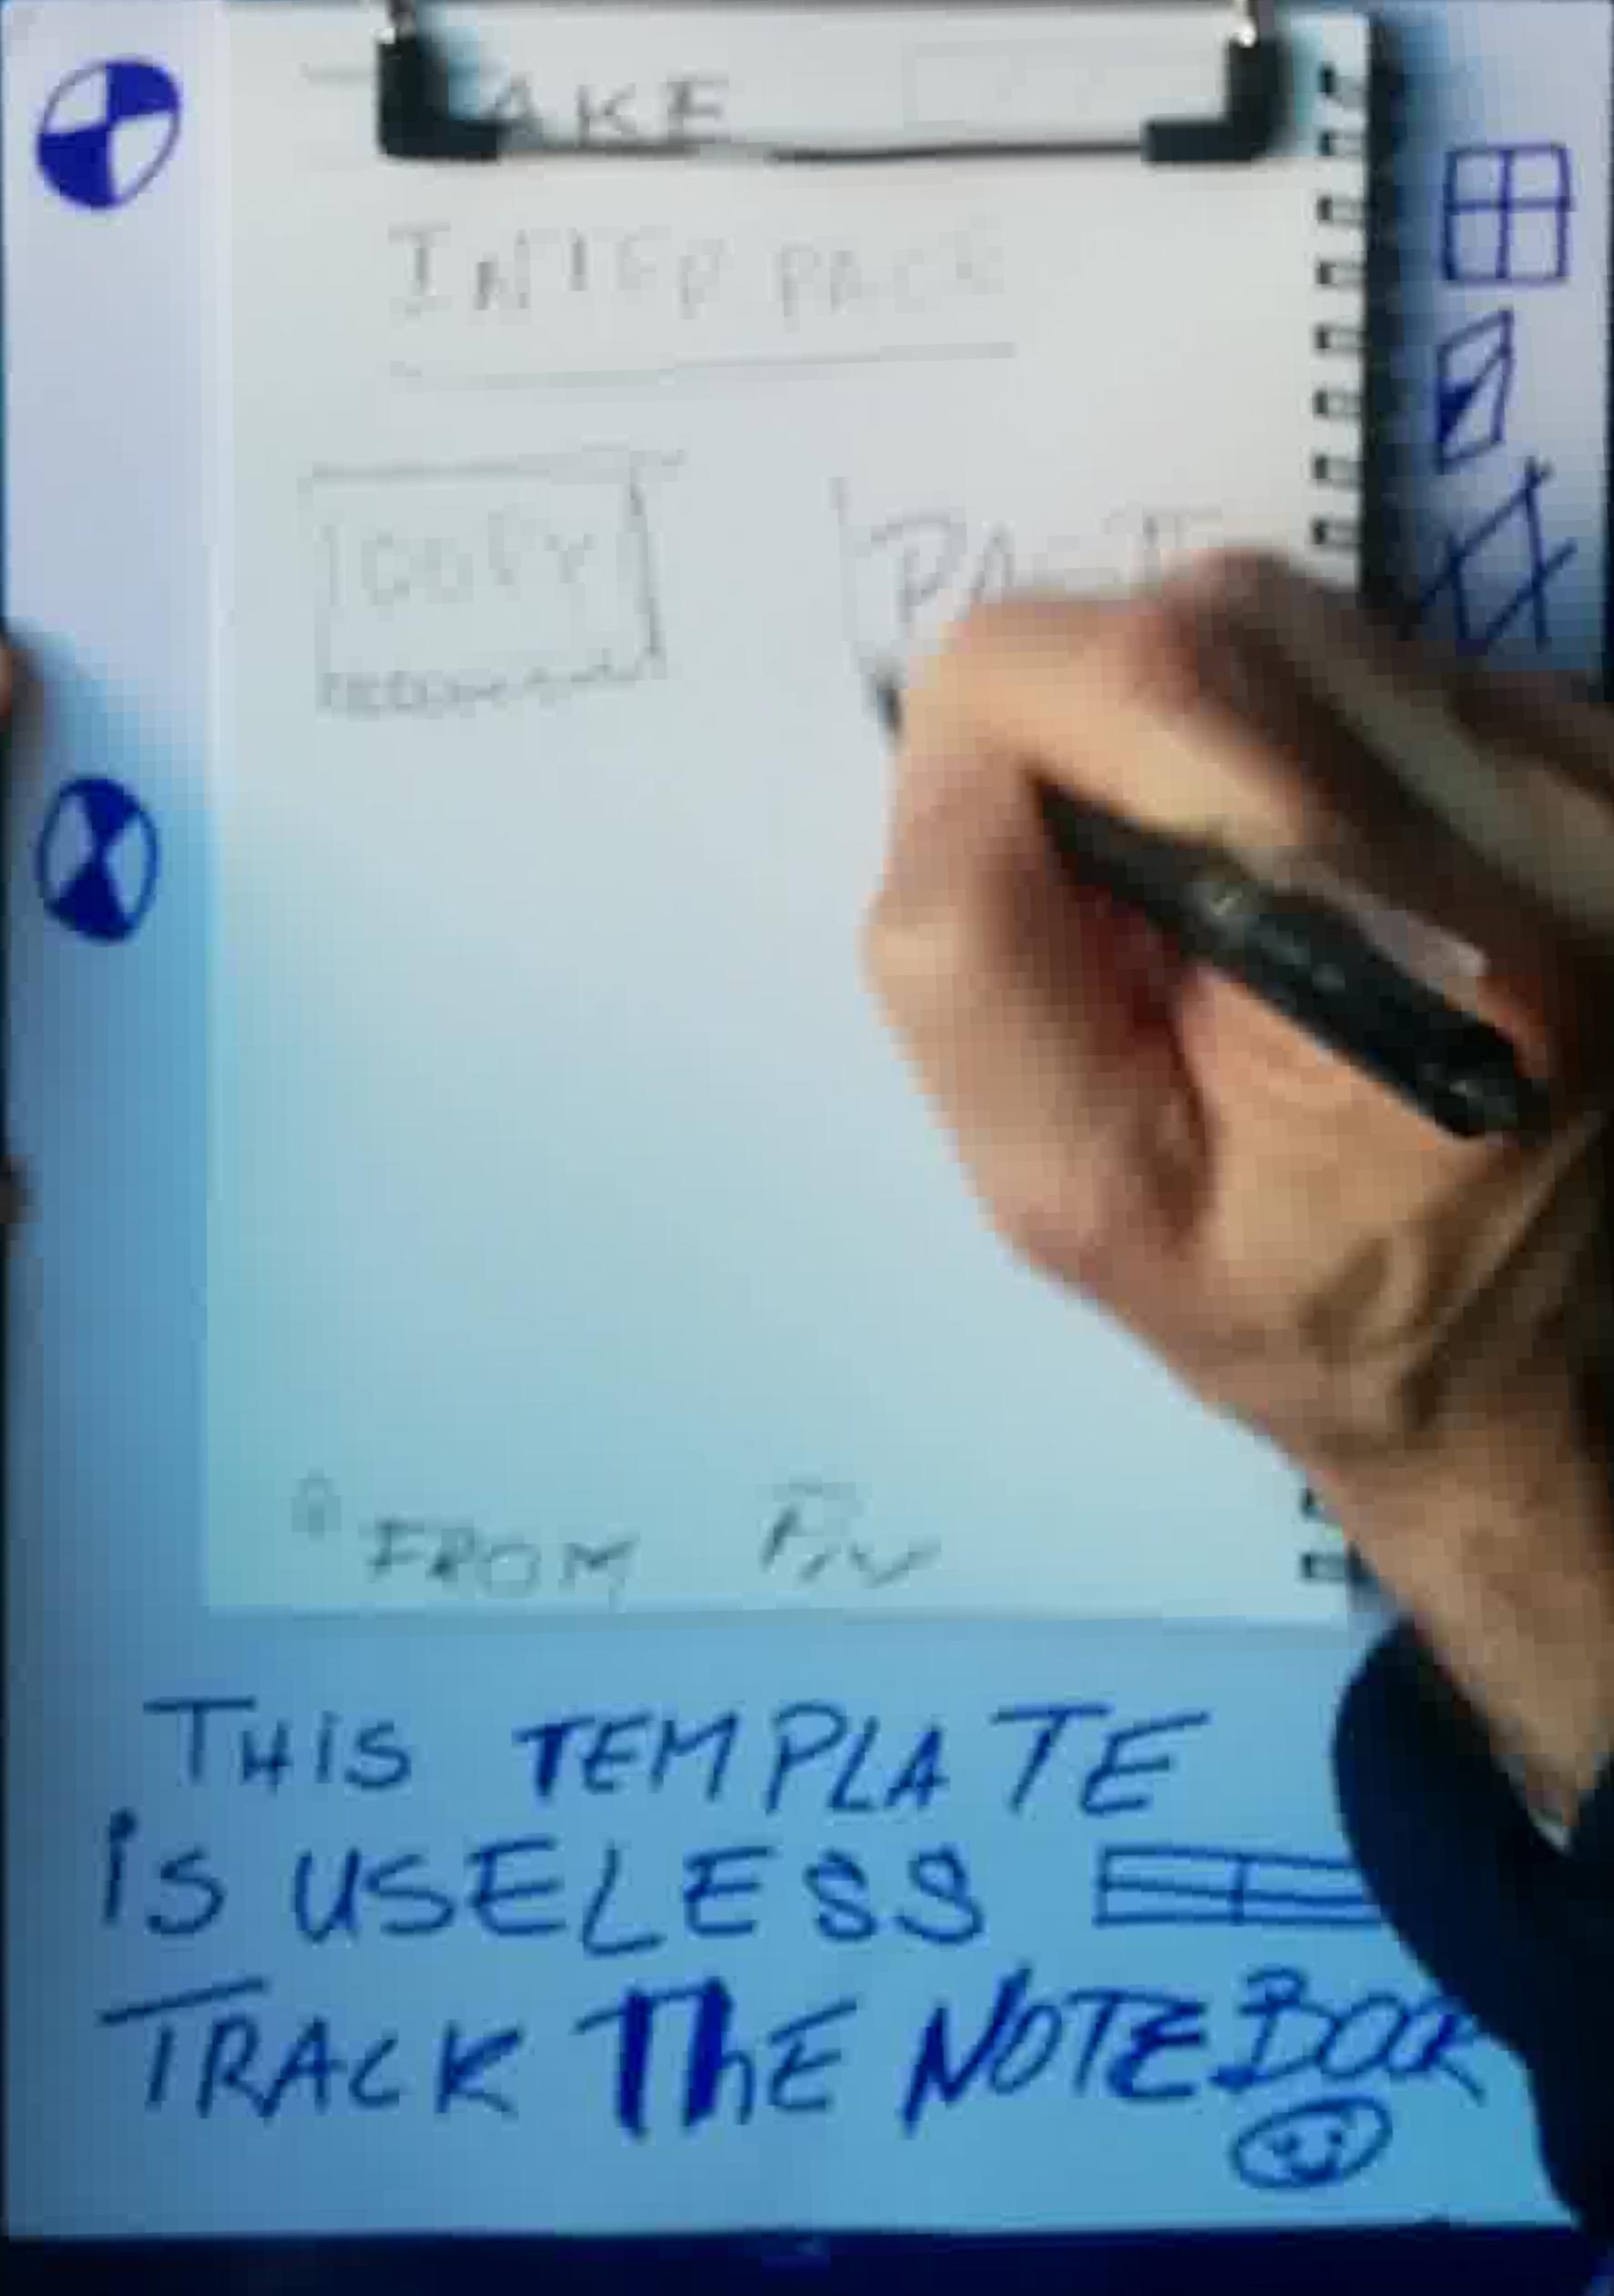 AKE
INTERFACE
COPY
PAST
FROM
THiS TEMPLATE
iS USELESS
TRACK ThE NOTEBOOK